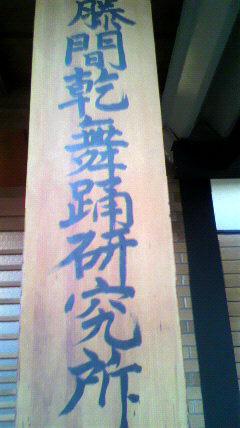 藤間乾舞踊研究所